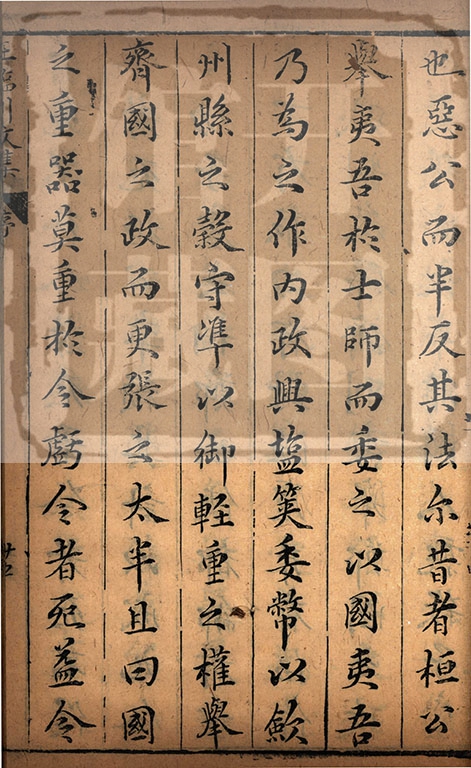 也惡公而半反其法尔昔者桓公
舉夷吾於士師而委之以國夷吾
乃為之作内政興塩筴委幣以歛
州縣之穀守準以御軽重之權舉
齊國之政而更張之太半且曰國
之重器莫重於令虧令者死益令
王臨川文集 序